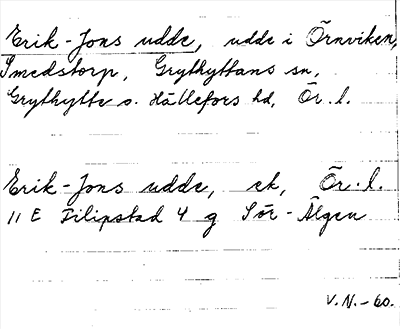 Erik-Jons udde, udde i Örnviken,
Smedstorp, Grythyttans sn,
Grythytte o. Hällefors hd, Ör. l.
Erik-Jons udde, ek, Ör. l.
11 E Filipstad 4 g Sör-Älgen
V.N.-60.